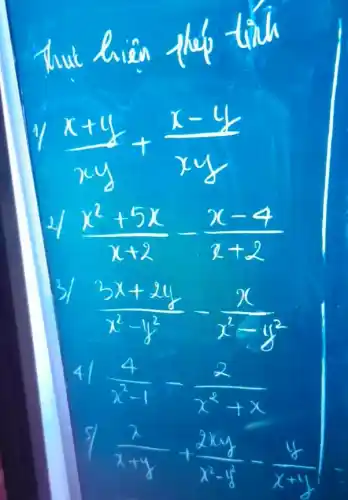 Thực hiện phép tính
1/ (x+y)/(xy) + (x-y)/(xy)
2/ (x² +5x)/(x+2) - (x-4)/(x+2)
3/ (3x+2y)/(x²-y²) - x/(x²-y²)
4/ 4/(x²-1) - 2/(x²+x)
5/ x/(x+y) + 2xy/(x²-y²) - y/(x+y)